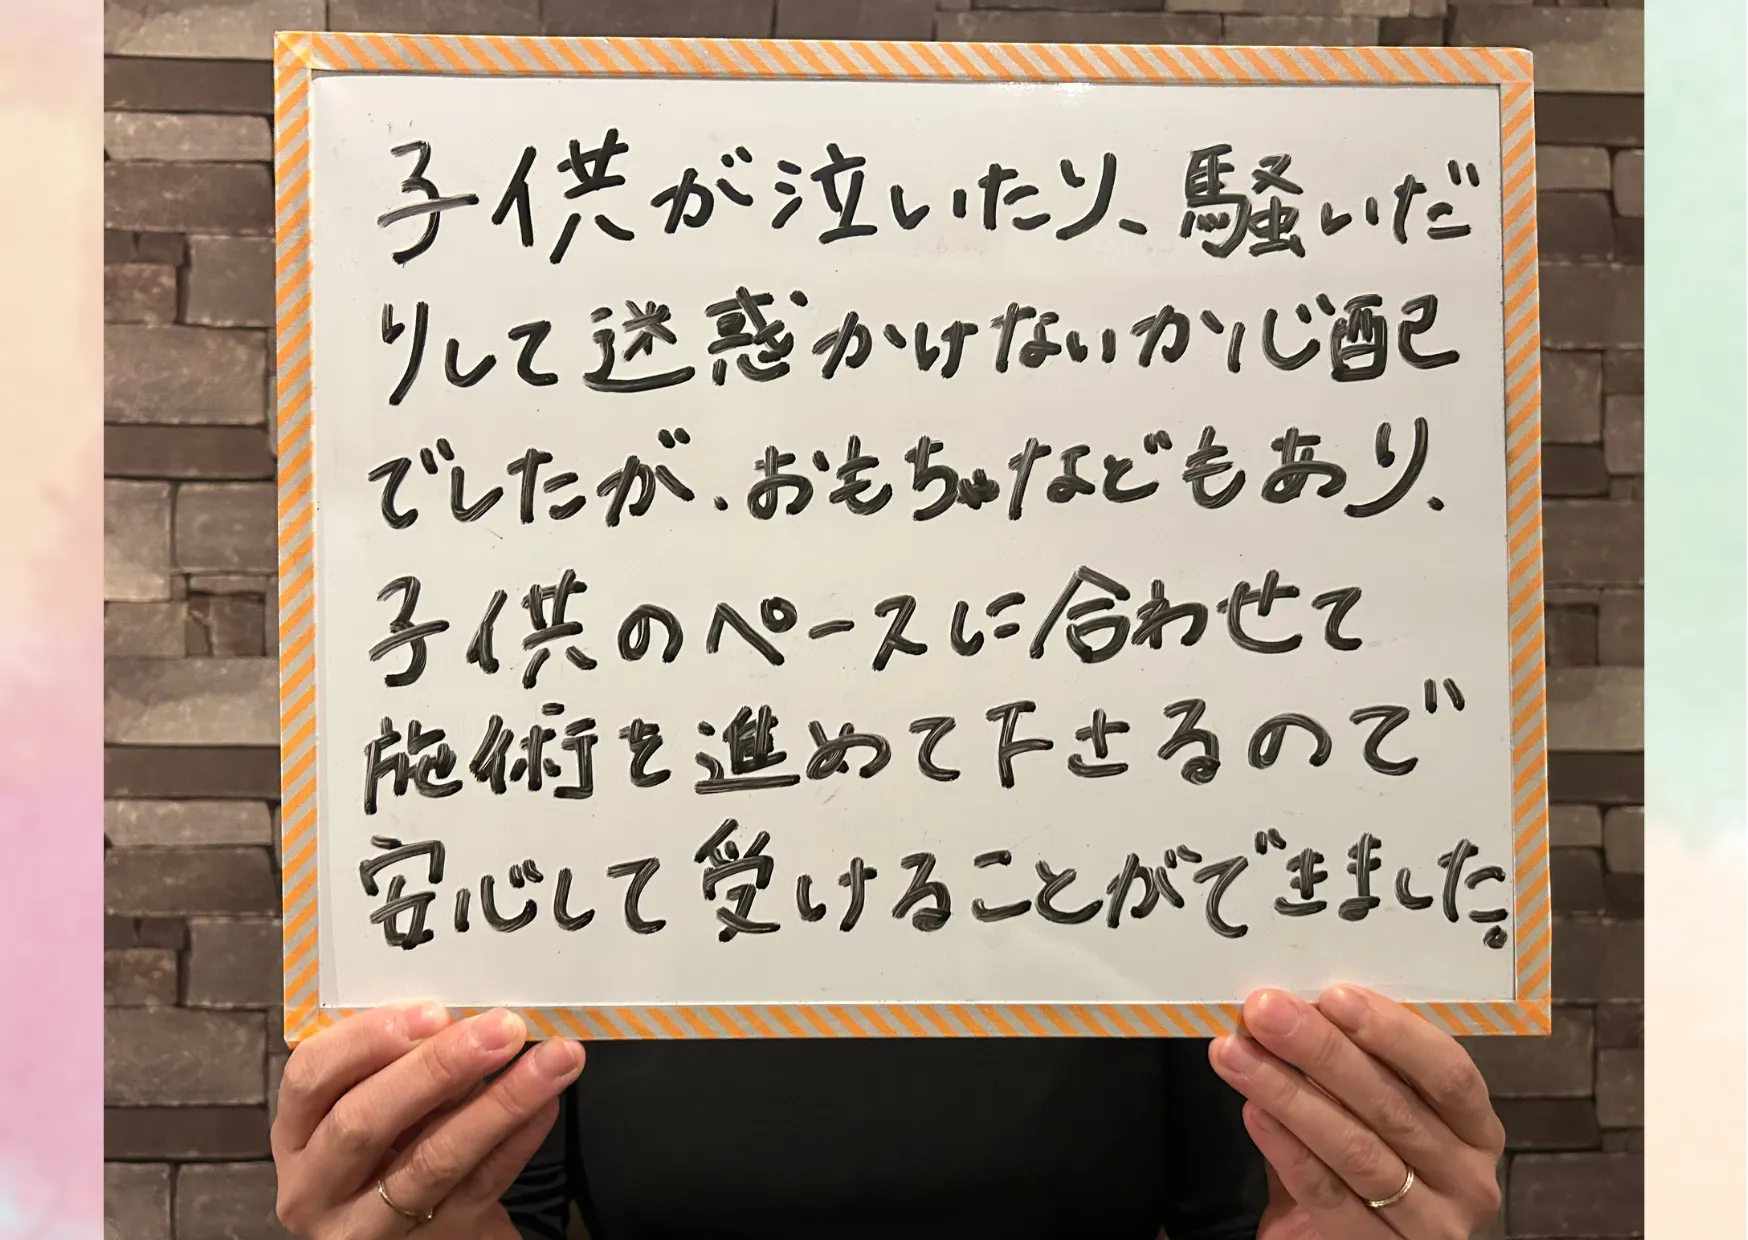 子供が泣いたり、騒いだ
りして迷惑かけないか心配
でしたが、おもちゃなどもあり、
子供のペースに合わせて
施術を進めて下さるので
安心して受けることができました。